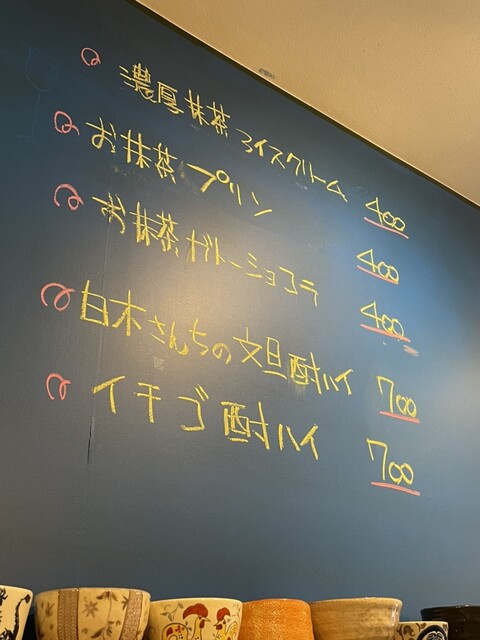 濃厚抹茶アイスクリーム 400
お抹茶プリン 400
お抹茶ガトーショコラ 400
白木さんちの文旦酎ハイ 700
イチゴ酎ハイ 700